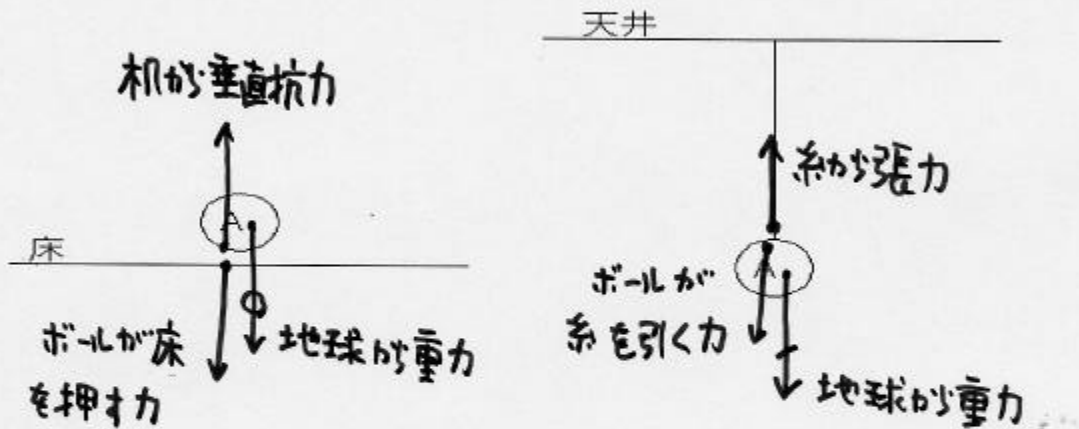 机から垂直抗力
A
床
ボールが床
を押す力
地球から重力
天井
糸から張力
A
ボールが
糸を引く力
地球から重力